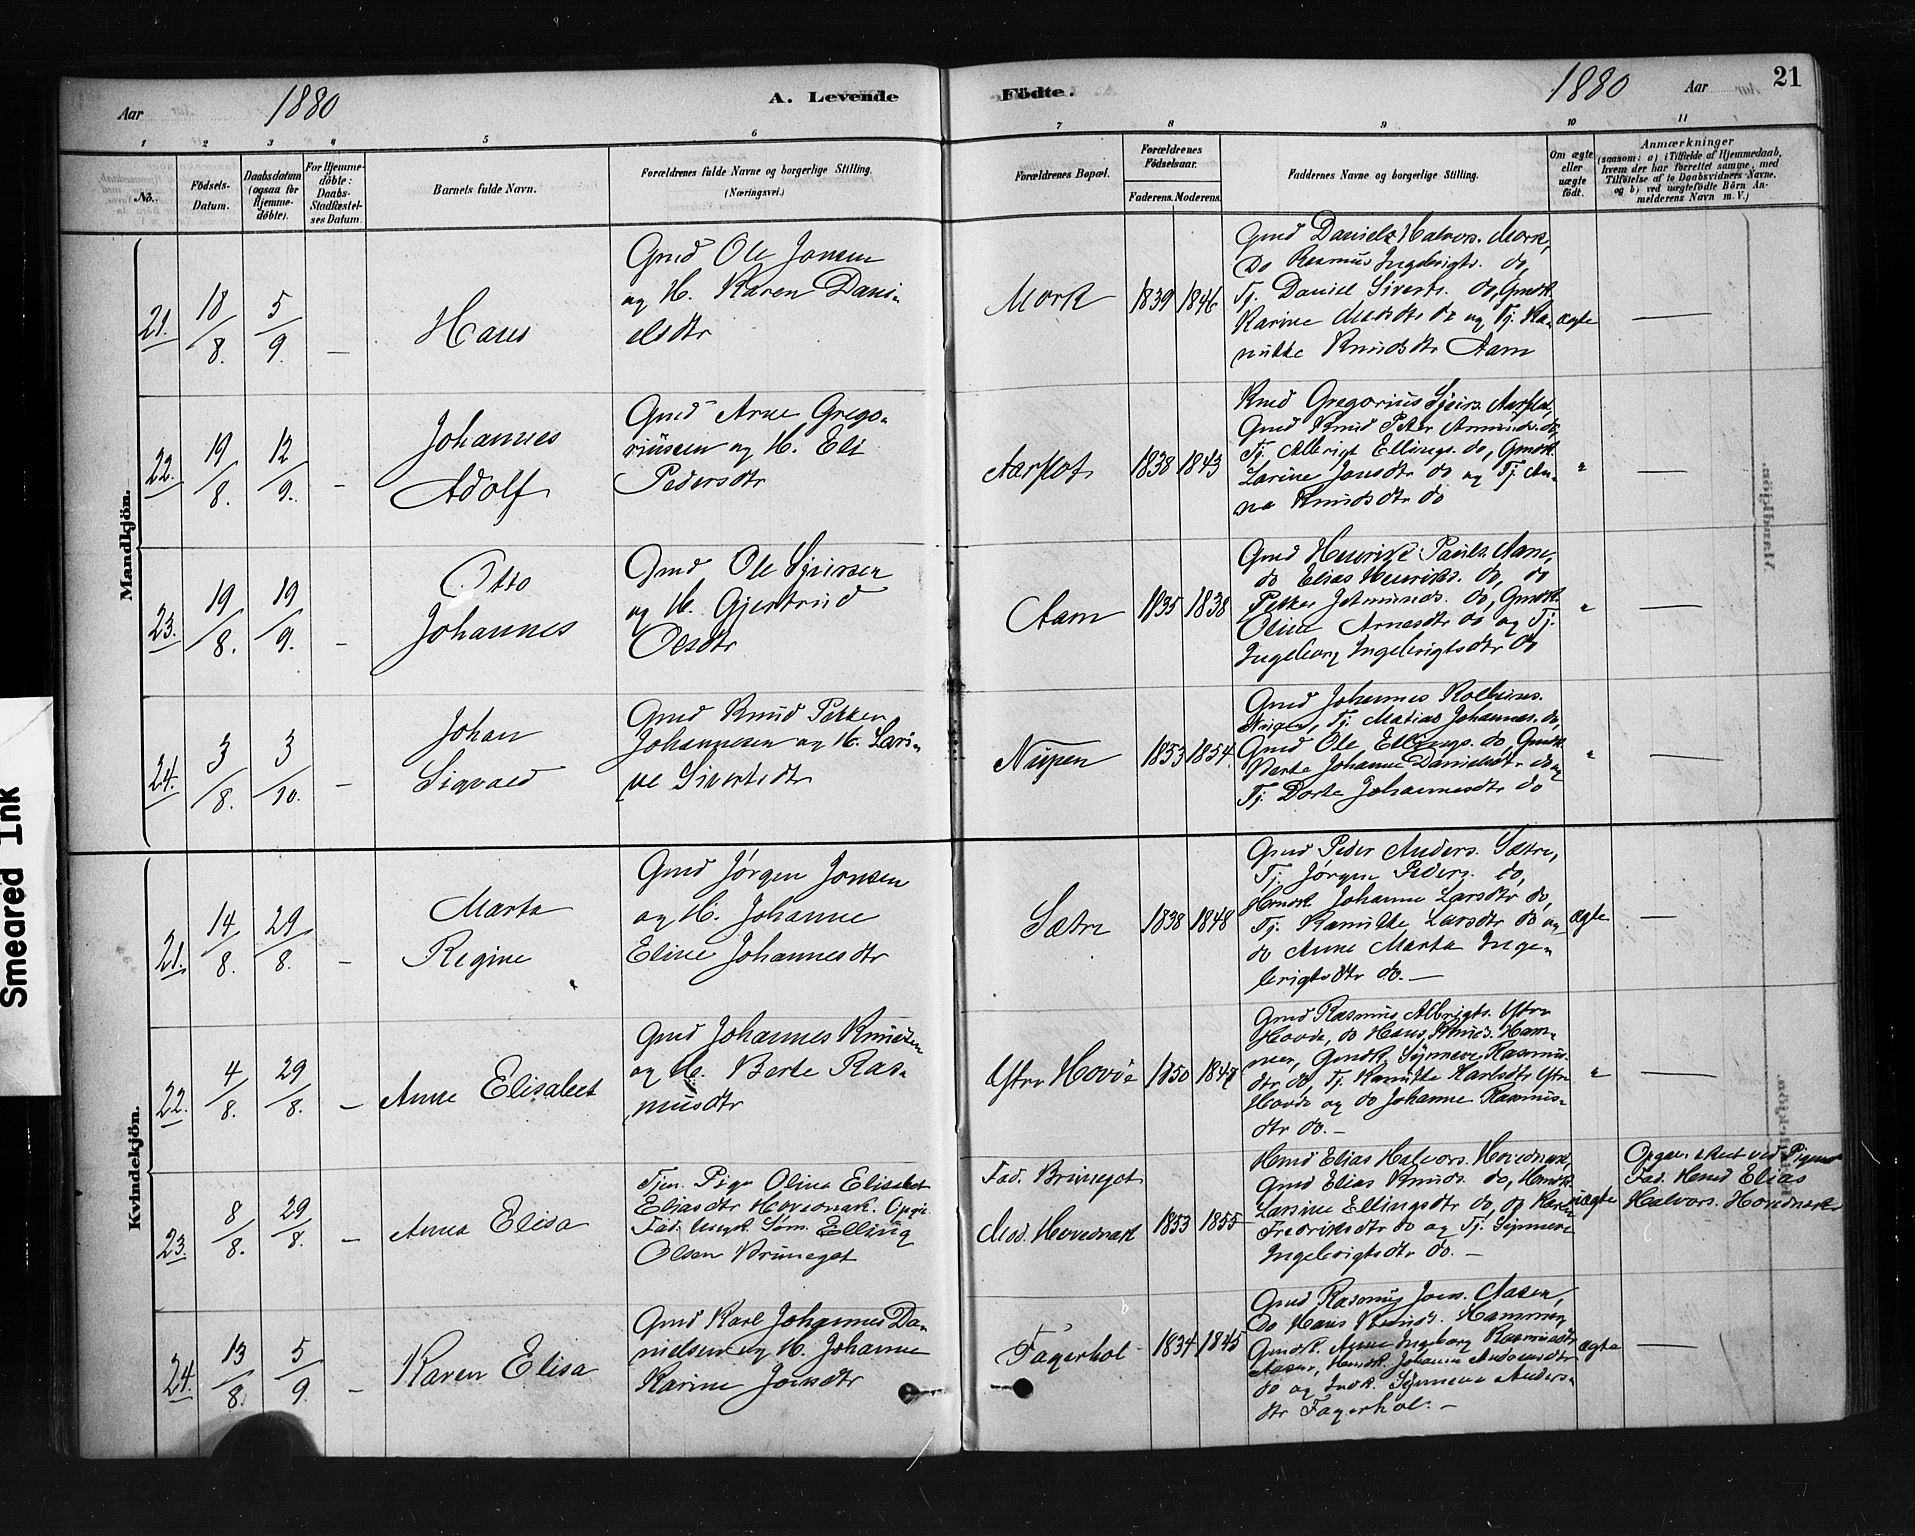 Aar 1880 A. Levende Fødte. 1880 Aar 21
1 2 3 4 5 6 7 8 9 10 11
No. Födsels-Datum. Daabsdatum (ogsaa for Hjemme-døbte). For Hjemme-døbte: Daabs-Stadfæstel-ses Datum. Barnets fulde Navn. Forældrenes fulde Navne og borgerlige Stilling. (Næringsvei.) Forældrenes Bopæl. Forældrenes Födselsaar. Faderens. Moderens. Faddernes Navne og borgerlige Stilling. Om ægte eller uægte født. Anmærkninger (saasom: a) i Tilfælde af Hjemmedaab, hvem der har forrettet samme, med Tilføielse af to Daabsvidners Navne, og b) ved uægtefødte Børn Anmelderens Navn m. V.)
Mandkjön.
21. 18/8. 5/9. — Hans
Gmd Ole Jonsen
og H. Karen Dani-
elsdtr
Mork 1839 1846
Gmd Daniel Halvors. Mork,
Do Rasmus Ingebrigts. do,
Tj. Daniel Siverts. do, Gmdk.
Karine Madsdtr do og Tj. Ka-
nutte Knudsdtr Aam
ægte —
22. 19/8. 12/9. - Johannes
Adolf
Gmd Arne Grego-
riussen og H. Eli
Pedersdtr
Aarflot 1838 1843
Kmd Gregorius Sjurs. Aarflot,
Gmd Knud Peter Amunds. do,
Tj. Albrigt Ellings. do, Gmdk.
Larine Jonsdtr do og Tj. An-
na Knudsdtr do
" —
23. 19/8. 19/9. - Otto
Johannes
Gmd Ole Sjursen
og H. Gjertrud
Olsdtr
Aam 1835 1838
Gmd Henrik Pauls. Aam,
do Elias Henriks. do, do
Petter Johannes. do, Gmdk.
Oline Arnesdtr do og Tj.
Ingeborg Ingebrigtsdtr do
" —
24. 3/8. 3/10. - Johan
Sigvald
Gmd Knud Petter
Johannesen og H. Lari-
ne Sivertsdtr
Nupen 1853 1854
Gmd Johannes Kolbeins.
Tj. Matias Johannes. do,
Gmd Ole Ellings. do, Gmdk.
Berte Johanne Danielsdtr do og
Tj. Dorte Johannesdtr do
" —
Kvindekjön.
21. 14/8. 29/8. - Marta
Regine
Gmd Jørgen Jonsen
og H. Johanne
Eline Johannesdtr
Sætre 1838 1848
Gmd Peder Anders. Sætre,
Tj. Jørgen Peders. do,
Hmdk Johanne Larsdtr do,
Tj. Kanutte Larsdtr do og
do Anne Marta Inge-
brigtsdtr do. —
ægte —
22. 4/8. 29/8. - Anne Elisabet
Gmd Johannes Knudsen
og H. Berte Ras-
musdtr
Ytre Hovde 1850
Gmd Rasmus Albrigts. Ytre
Hovde, do Hans Knuds. Ham-
nen, Gmdk. Synneve Rasmus-
dtr do, Tj. Kanutte Karlsdtr Ytre
Hovde og do Johanne Rasmus-
dtr do. —
" —
23. 8/8. 29/8. - Anna Elisa
Tjen. Pige Olina Elisabet
Eliasdtr Hovednak. Opgiv.
Fad. Ungk. Søm. Elling
Olsen Bruneget
Fad. Bruneget
Mod. Hovednak 1853 1855
Hmd Elias Halvors. Hovednak,
Gmd Elias Knuds. do, Hmdk.
Larsine Ellingsdtr do, do Karen
Fredriksdtr do og Tj. Synneve
Ingebrigtsdtr do. —
uægte
ved Pigens
Fad. Hmd Elias
Halvors. Hovednak
24. 13/8. 5/9. - Karen Elisa
Gmd Karl Johannes Da-
nielsen og H. Johanne
Karine Jonsdtr
Fagerhol 1834 1845
Gmd Rasmus Jons. Aasen,
Do Hans Knuds. Hamnen,
Gmdk. Anne Ingeborg Rasmusdtr
Aasen, Hmdk. Johanne Andersdtr
do og Synneve Anders-
dtr Fagerhol. —
ægte —
Smeared Ink